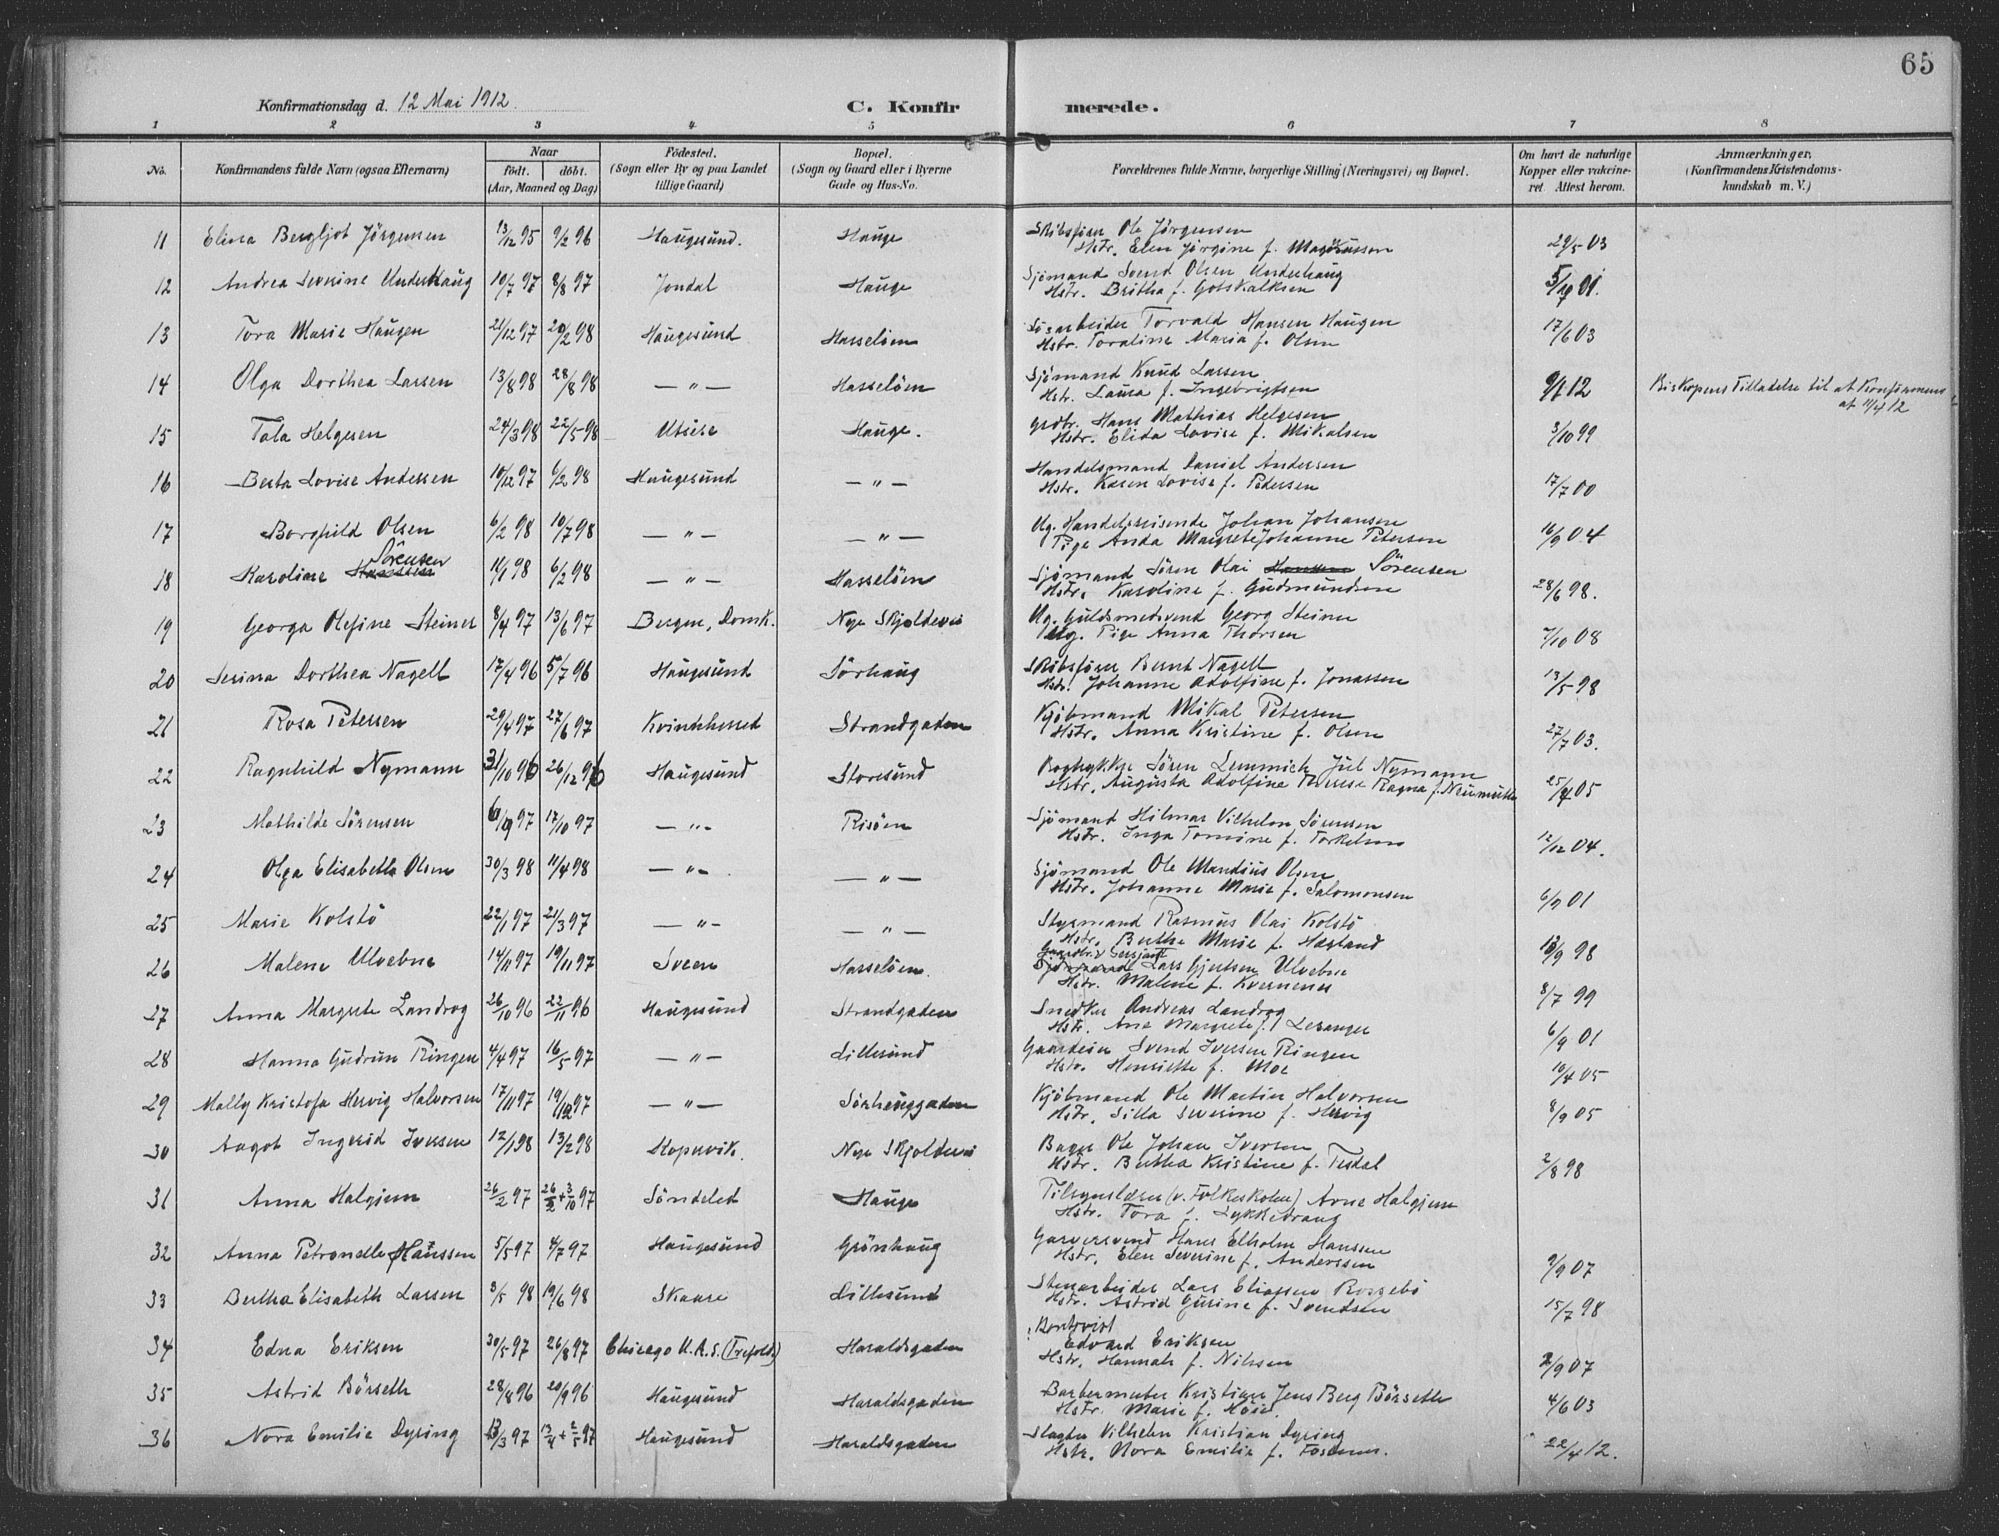 65
Konfirmationsdag d. 12 Mai 1912.
C. Konfirmerede.
1 2 3 4 5 6 7 8
No. Konfirmandens fulde Navn (ogsaa Efternavn) Naar født. døbt. (Aar, Maaned og Dag) Fødested. (Sogn eller By og paa Landet tillige Gaard) Bopæl. (Sogn og Gaard eller i Byerne Gade og Hus-No. Forældrenes fulde Navne, borgerlige Stilling (Næringsvei) og Bopæl. Om havt de naturlige Kopper eller vaccineret. Attest herom. Anmærkninger, (Konfirmandens Kristendomskundskab m. V.)
11 Elina Bergljot Jörgensen 13/12 95 9/2 96 Haugesund. Hauge Skibsförer Ole Jörgensen
Hstr. Elen Jörgine f. Magnussen 29/5 03
12 Andrea Severine Underhaug 10/7 97 8/8 97 Jondal Hauge Sjömand Svend Olsen Underhaug
Hstr. Britha f. Gotskalksen 5/10 01.
13 Tora Marie Haugen 21/12 97 20/2 98 Haugesund Hasselöen Söarbeider Torvald Hansen Haugen
Hstr. Toraline Maria f. Olsen 17/6 03
14 Olga Dorthea Larsen 13/8 98 28/8 98 — " — Hasselöen Sjömand Knud Larsen
Hstr. Laura f. Ingebrigtsen 9/1 12 Biskopens Tilladelse til at Konfirmeres
at 11/4 12
15 Tala Helgesen 24/3 98 22/5 98 Utsire Hauge. Grdbr. Hans Mathias Helgesen
Hstr. Elida Lovise f. Mikalsen 3/10 99
16 Berta Lovise Andersen 10/12 97 6/2 98 Haugesund — " — Handelsmand Daniel Andersen
Hstr. Karen Lovise f. Petersen 17/7 00
17 Borghild Olsen 6/2 98 10/7 98 — " — — " — Ug. Handelsreisende Johan Johansen
Pige Anda Margrete Johanne Petersen 16/9 04
18 Karoline Sörensen 11/1 98 6/2 98 — " — Hasselöen Sjömand Sören Olai Hansen Sörensen
Hstr. Karoline f. Gudmundsen 28/6 98.
19 Georga Olefine Steiner 8/4 97 13/6 97 Bergen, Domk. Nye Skjoldevei Ug. Guldsmedsvend Georg Steiner
Ug. Pige Anna Thorsen 7/10 08
20 Serina Dorthea Nagell 17/4 96 5/7 96 Haugesund Sörhaug Skibsförer Bernt Nagell
Hstr. Johanne Adolfine f. Jonassen 13/5 98
21 Rosa Petersen 29/4 97 27/6 97 Kvindherred Strandgaden Kjöbmand Mikal Petersen
Hstr. Anna Kristine f. Olsen 27/7 03.
22 Ragnhild Nymann 31/10 96 26/12 96 Haugesund Storesund Bogtrykker Sören Lemmich Jul Nymann
Hstr. Augusta Adolfine Therese Ragna f. 25/4 05
23 Mathilde Sörensen 6/9 97 17/10 97 — " — Risöen Sjömand Hilmar Vilhelm Sörensen
Hstr. Inga Tomine f. Torkelsen 12/12 04.
24 Olga Elisabeth Olsen 30/3 98 11/4 98 — " — — " — Sjömand Ole Mandius Olsen
Hstr. Johanne Marie f. Salomonsen 6/9 01
25 Marie Kolstö 22/1 97 21/3 97 — " — — " — Styrmand Rasmus Olai Kolstö
Hstr. Berthe Marie f. Hæsland 13/9 98
26 Malene Ulvebne 14/11 97 19/11 97 Sveen Hasselöen. Gaardbr. Sergjant
Sjömand Lars Gjertsen Ulvebne
Hstr. Malene f. Kvernenes 8/7 99
27 Anna Margrete Landrog 26/10 96 22/11 96 Haugesund Strandgaden Snedker Andreas Landrog
Hstr. Ane Margrete f. Leranger 6/9 01
28 Hanna Gudrun Ringen 4/4 97 16/5 97 — " — Lillesund Gaardeier Svend Iversen Ringen
Hstr. Henriette f. Moe 10/4 05
29 Mally Kristofa Hervig Halvorsen 17/11 97 19/12 97 — " — Sörhauggaden Kjöbmand Ole Martin Halvorsen
Hstr. Silla Severine f. Hervig 8/9 05
30 Aagot Ingerid Iversen 12/1 98 13/2 98 Kopervik. Nye Skjoldevei Bager Ole Johan Iversen
Hstr. Bertha Kristine f. Tesdal 2/8 98
31 Anna Halgjem 26/2 97 26/2 + 3/10 97 Söndeled Hauge Tilsynslærer (v. Folkeskolen) Arne Halgjem
Hstr. Tora f. Lykkedrang
32 Anna Petronelle Hanssen 5/5 97 4/7 97 Haugesund Grönhaug Garversvend Hans Elholm Hanssen
Hstr. Elen Severine f. Anderssen 9/9 07
33 Bertha Elisabeth Larsen 3/5 98 19/6 98 Skaare Lillesund Stenarbeider Lars Eliassen Rossebö
Hstr. Astrid Gurine f. Svendsen 15/7 98
34 Edna Eriksen 30/5 97 26/8 97 Chicago U.A.S. Haraldsgaden Edvard Eriksen
Hstr. Hannah f. Nilssen 2/9 07
35 Astrid Börseth 28/8 96 20/9 96 Haugesund Haraldsgaden Barbermester Kristian Jens Berg Börseth
Hstr. Marie f. Höie 4/6 03
36 Nora Emilie Dyring 13/3 97 13/4 + 2/5 97 Haugesund Haraldsgaden Slagter Vilhelm Kristian Dyring
Hstr. Nora Emilie f. Fosenes. 22/4 12.